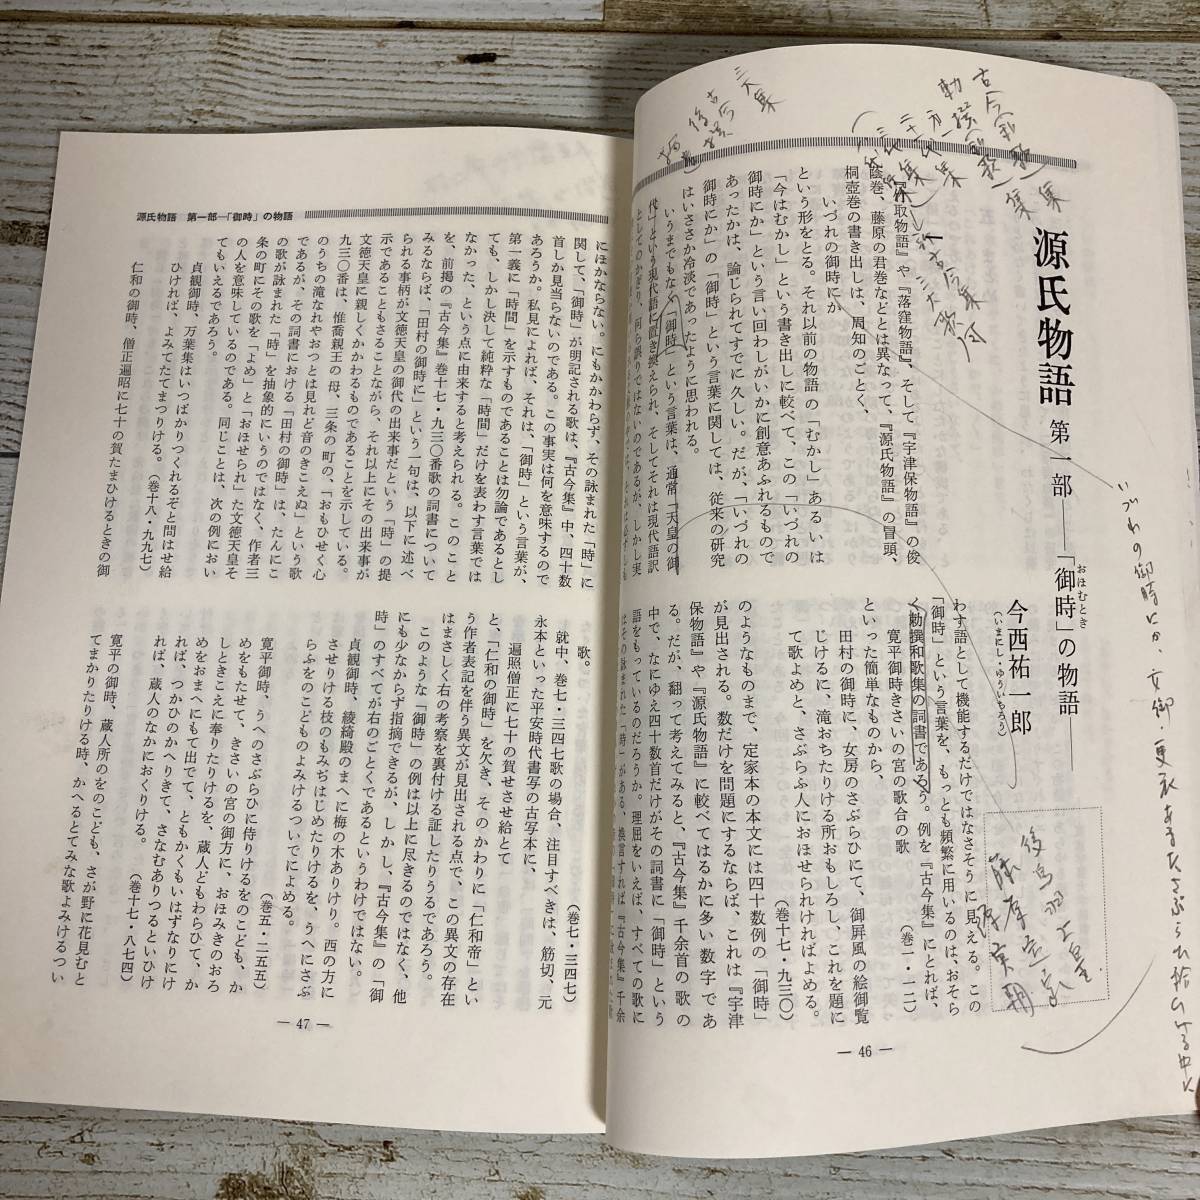 源氏物語 第一部――「御時」の物語――
おほむとき
今西祐一郎
(いまにし・ゆういちろう)
『竹取物語』や『落窪物語』、そして『宇津保物語』の俊
蔭巻、藤原の君巻などとは異なって、『源氏物語』の冒頭、
桐壺巻の書き出しは、周知のごとく、
いづれの御時にか
という形をとる。それ以前の物語の「むかし」あるいは
「今はむかし」という書き出しに較べて、この「いづれの
御時にか」という言い回わしがいかに創意あふれるもので
あったかは、論じられてすでに久しい。だが、「いづれの
御時にか」の「御時」という言葉に関しては、従来の研究
はいささか冷淡であったように思われる。
いうまでもなく「御時」という言葉は、通常「天皇の御
代」という現代語に置き換えられ、そしてそれは現代語訳
としてのかぎり、何ら誤りではないのであるが、しかし実
わす語として機能するだけではなさそうに見える。この
「御時」という言葉を、もっとも頻繁に用いるのは、おそら
く勅撰和歌集の詞書であろう。例を『古今集』にとれば、
寛平御時きさいの宮の歌合の歌
(巻一・一二)
といった簡単なものから、
田村の御時に、女房のさぶらひにて、御屏風の絵御覧
じけるに、滝おちたりける所おもしろし、これを題に
て歌よめと、さぶらふ人におほせられければよめる。
(巻十七・九三〇)
のようなものまで、定家本の本文には四十数例の「御時」
が見出される。数だけを問題にするならば、これは『宇津
保物語』や『源氏物語』に較べてはるかに多い数字であ
る。だが、翻って考えてみると、『古今集』千余首の歌の
中で、なにゆえ四十数首だけがその詞書に「御時」という
語をもっているのだろうか。理屈をいえば、すべての歌に
はその詠まれた「時」がある、換言すれば『古今集』千余
― 46 ―
いづれの御時にか、女御・更衣あまたさぶらひ給ひける中に
古今(和歌)集
勅撰(和歌)集
二十一代集
三大集
古今
後撰
後鳥羽上皇
藤原定家
源実朝
源氏物語 第一部―「御時」の物語
にほかならない。にもかかわらず、その詠まれた「時」に
関して、「御時」が明記される歌は、『古今集』中、四十数
首しか見当らないのである。この事実は何を意味するので
あろうか。私見によれば、それは、「御時」という言葉が、
第一義に「時間」を示すものであることは勿論であるとし
ても、しかし決して純粋な「時間」だけを表わす言葉では
なかった、という点に由来すると考えられる。このこと
を、前掲の『古今集』巻十七・九三〇番歌の詞書について
みるならば、「田村の御時に」という一句は、以下に述べ
られる事柄が文徳天皇の御代の出来事だという「時」の提
示であることもさることながら、それ以上にその出来事が
文徳天皇に親しくかかわるものであることを示している。
九三〇番は、惟喬親王の母、三条の町の、「おもひせく心
のうちの滝なれやおつとは見れど音のきこえぬ」という歌
であるが、その詞書における「田村の御時」は、たんにこ
の歌が詠まれた「時」を抽象的にいうのではなく、作者三
条の町にその歌を「よめ」と「おほせられ」た文徳天皇そ
の人を意味しているのである。同じことは、次の例におい
てもいえるであろう。
貞観御時、万葉集はいつばかりつくれるぞと問はせ給
ひければ、よみてたてまつりける。(巻十八・九九七)
仁和の御時、僧正遍昭に七十の賀たまひけるときの御
歌。
(巻七・三四七)
就中、巻七・三四七歌の場合、注目すべきは、筋切、元
永本といった平安時代書写の古写本に、
遍照僧正に七十の賀せさせ給とて
と、「仁和の御時」を欠き、そのかわりに「仁和帝」とい
う作者表記を伴う異文が見出される点で、この異文の存在
はまさしく右の考察を裏付ける証したりうるであろう。
このような「御時」の例は以上に尽きるのではなく、他
にも少なからず指摘できるが、しかし、『古今集』の「御
時」のすべてが右のごとくであるというわけではない。
貞観御時、綾綺殿のまへに梅の木ありけり。西の方に
させりける枝のもみぢはじめたりけるを、うへにさぶ
らふをのこどものよみけるついでによめる。
(巻五・二五五)
寛平御時、うへのさぶらひに侍りけるをのこども、か
めをもたせて、きさいの宮の御方に、おほみきのおろ
しときこえに奉りたりけるを、蔵人どもわらひて、か
めをおまへにもて出でて、ともかくもいはずなりにけ
れば、つかひのかへりきて、さなむありつるといひけ
れば、蔵人のなかにおくりける。
(巻十七・八七四)
寛平の御時、蔵人所のをのこども、さが野に花見むと
てまかりたりける時、かへるとてみな歌よみけるつい
― 47 ―